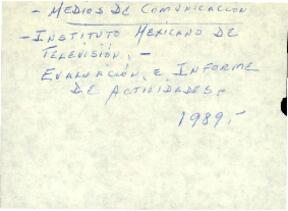 - MEDIOS DE COMUNICACION
- INSTITUTO MEXICANO DE
TELEVISIÓN, -
EVALUACIÓN E INFORME
DE ACTIVIDADES.
1989.-